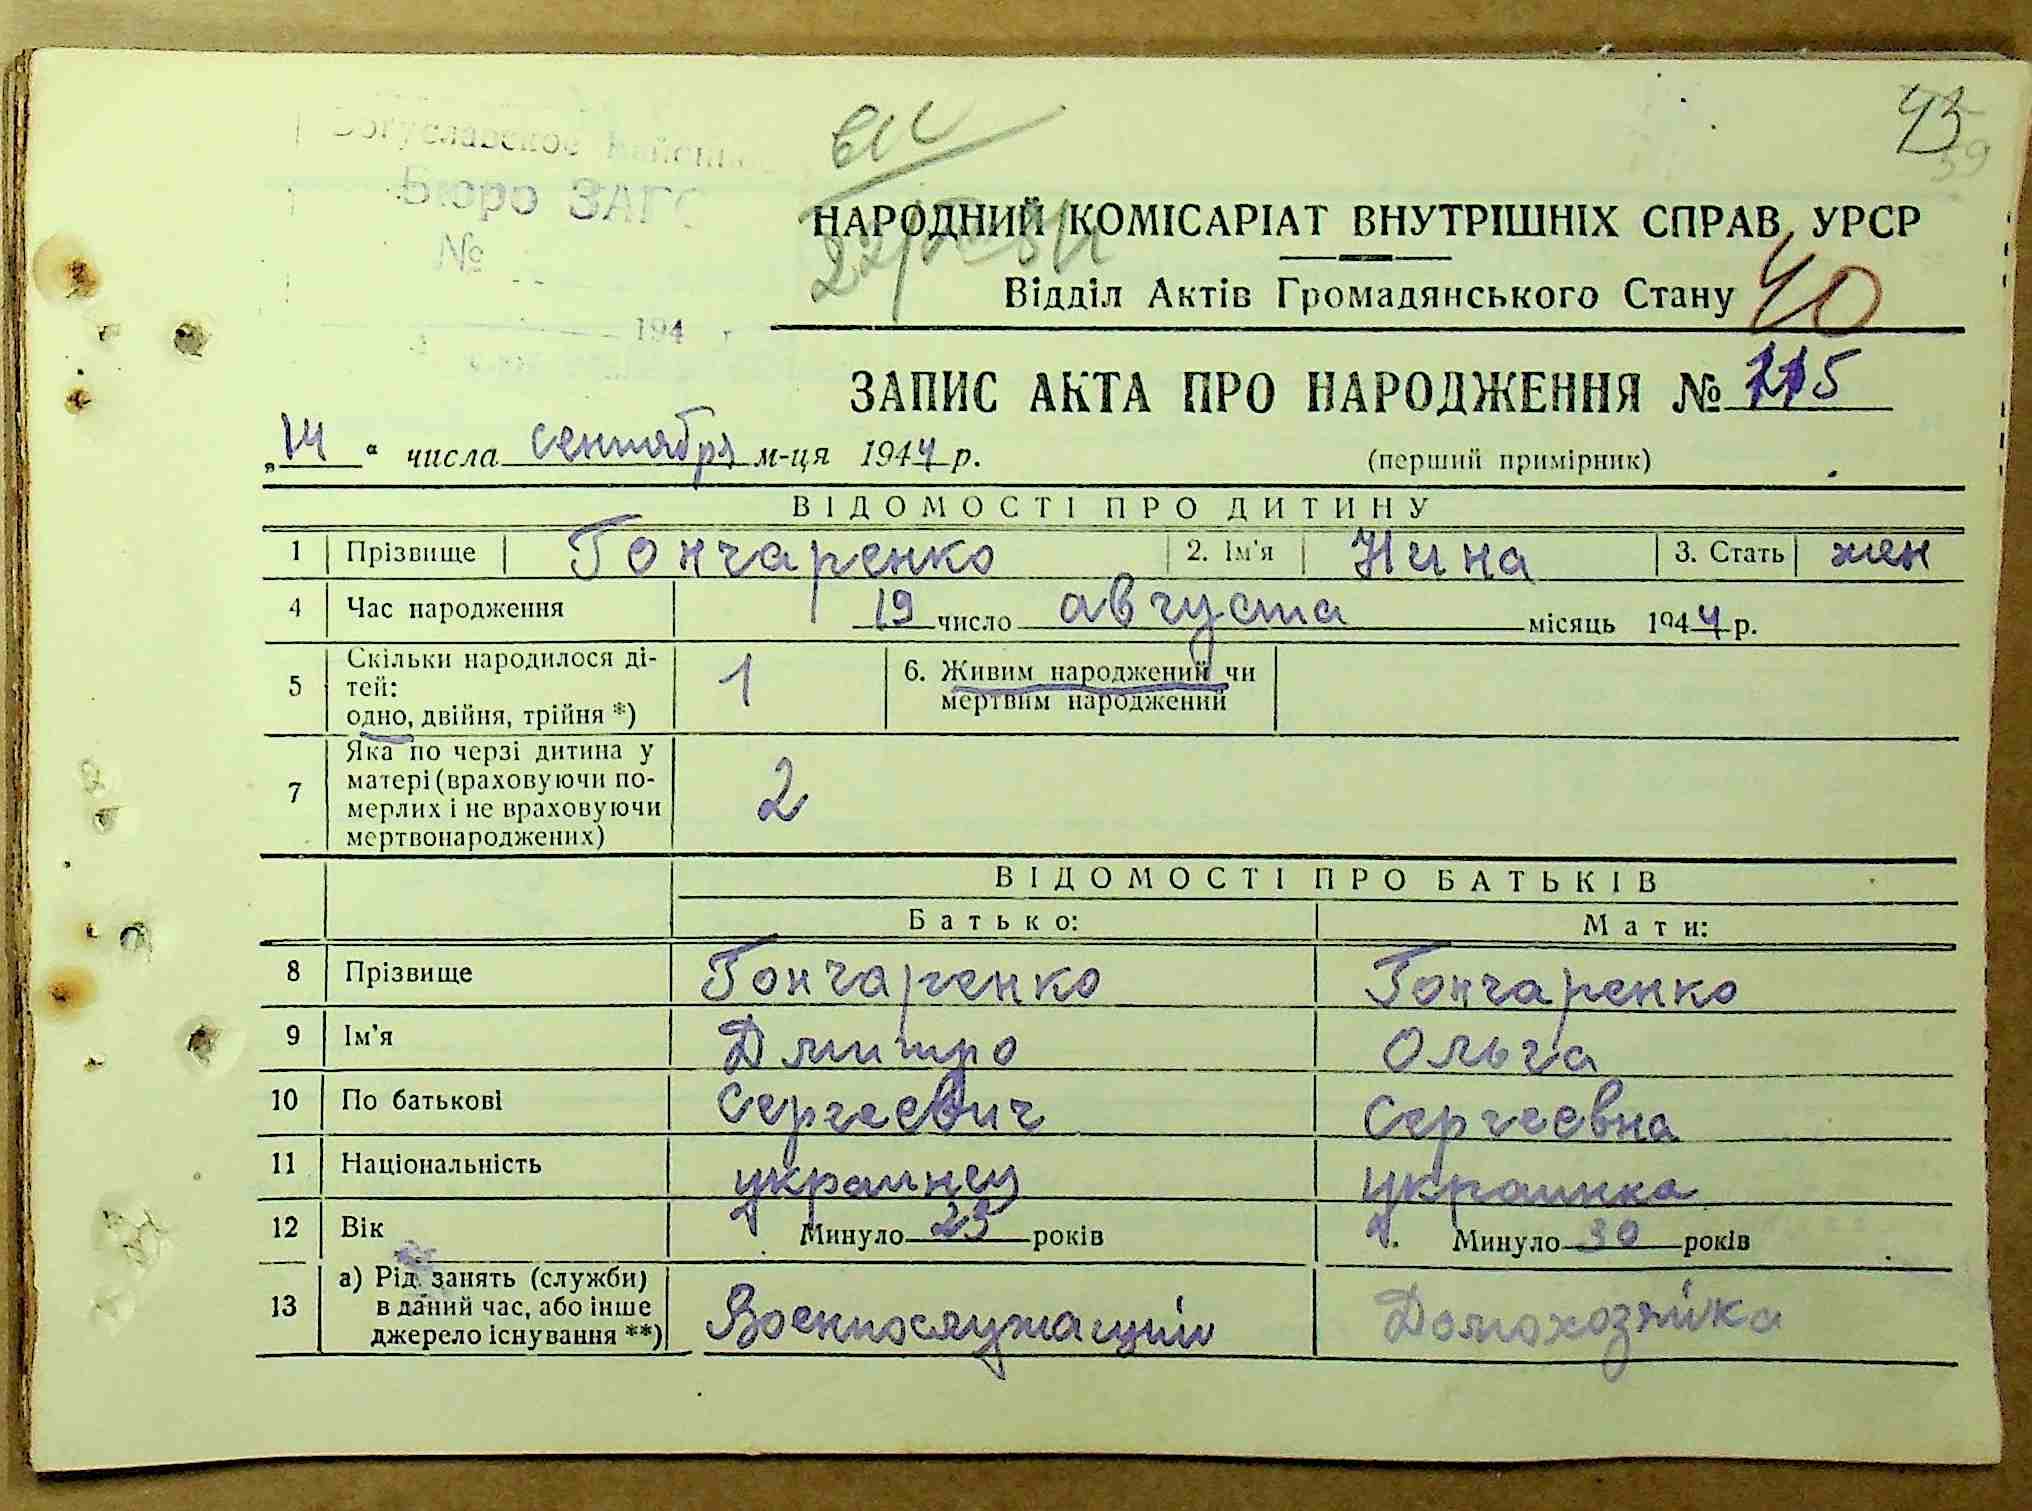 Богуславское Район
Бюро ЗАГС
№
194 г
43
39
НАРОДНИЙ КОМІСАРІАТ ВНУТРІШНІХ СПРАВ УРСР
Відділ Актів Громадянського Стану
40
ЗАПИС АКТА ПРО НАРОДЖЕННЯ № 115
„14“ числа сентября м-ця 1944 р.
(перший примірник)
ВІДОМОСТІ ПРО ДИТИНУ
1 Прізвище Гончаренко 2. Ім'я Нина 3. Стать жен
4 Час народження 19 число августа місяць 1944 р.
5 Скільки народилося ді-
тей:
одно, двійня, трійня *)
1
6. Живим народжений чи
мертвим народжений
7 Яка по черзі дитина у
матері (враховуючи по-
мерлих і не враховуючи
мертвонароджених)
2
ВІДОМОСТІ ПРО БАТЬКІВ
Батько: Мати:
8 Прізвище Гончаренко Гончаренко
9 Ім'я Дмитро Ольга
10 По батькові Сергеевич Сергеевна
11 Національність украинец украинка
12 Вік Минуло 25 років Минуло 30 років
13 а) Рід занять (служби)
в даний час, або інше
джерело існування **)
Военнослужащий Домохозяйка